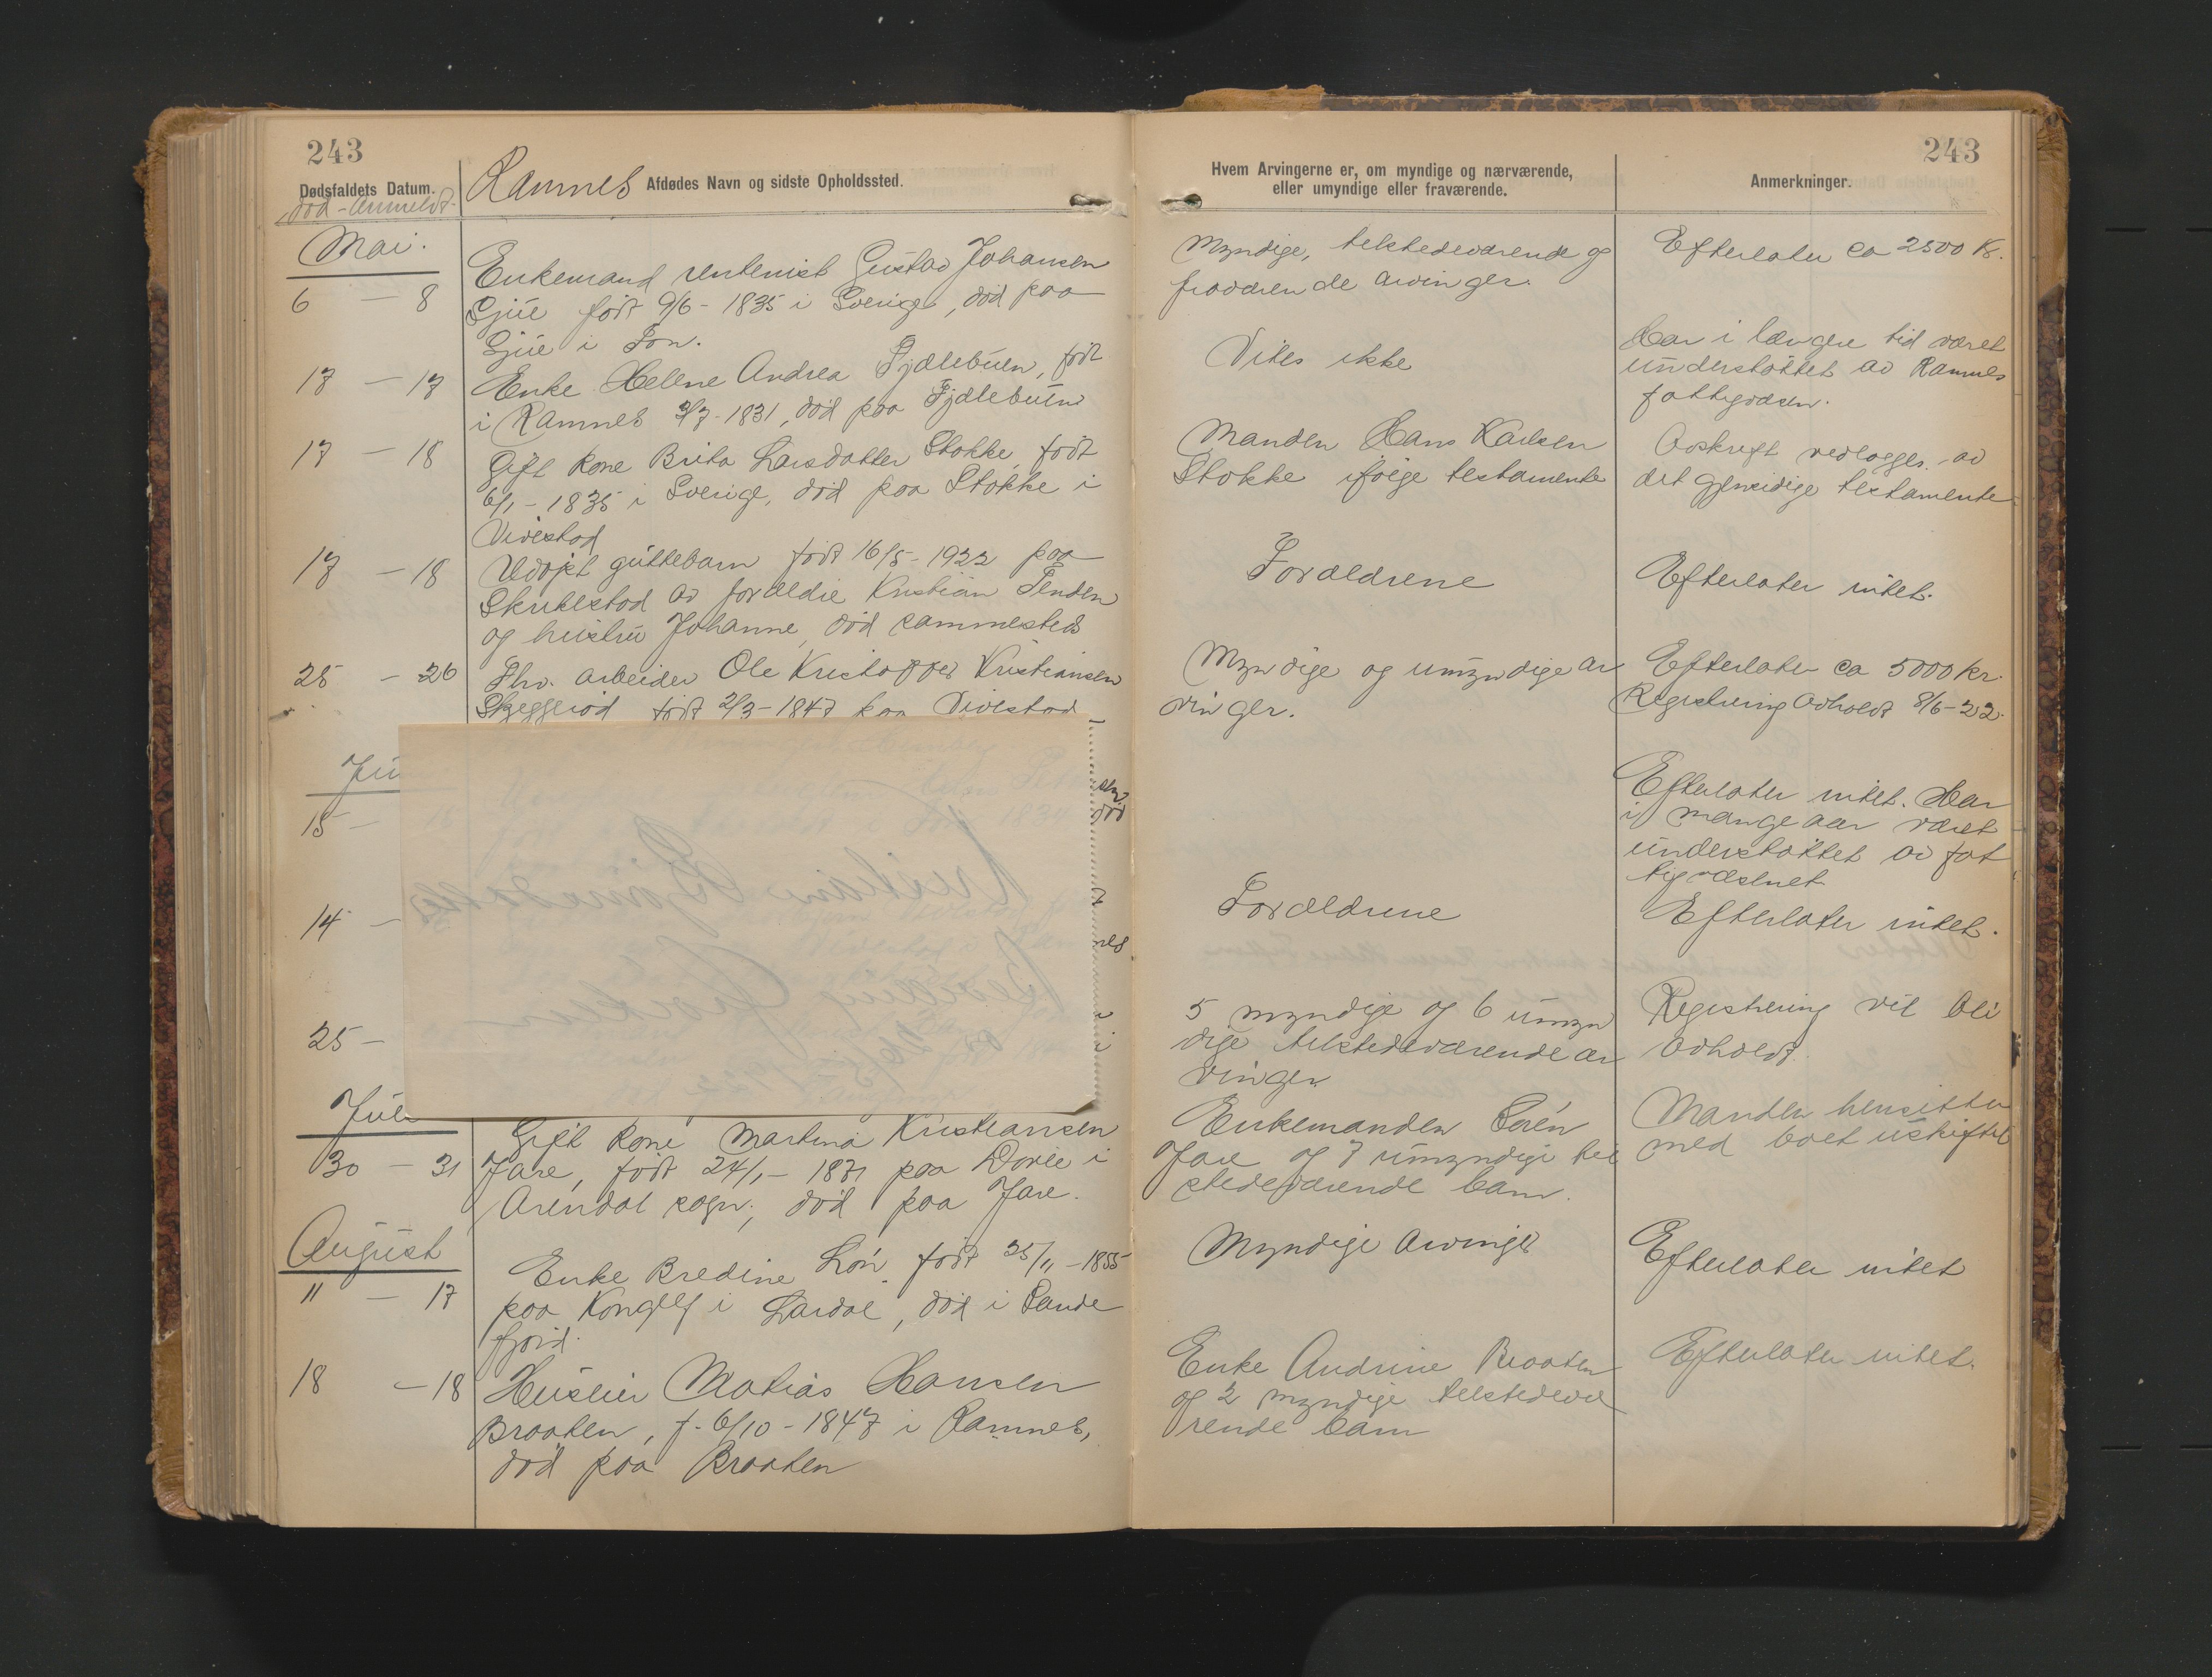 243
Dødsfaldets Datum.
død - Anmeldt.
Ramnes Afdødes Navn og sidste Opholdssted.
Mai.
6 - 8
Enkemand rentenist Gustav Johansen
Gjue født 9/6 - 1835 i Sverige, død paa
Gjue i Fon.
17 - 17
Enke Helene Andrea Fjælebuen, født
i Ramnes 3/7 - 1831, død paa Fjælebuen
17 - 18
Gift kone Brita Larsdatter Stokke, født
6/1 - 1835 i Sverige, død paa Stokke i
Vivestad
17 - 18
Udøpt guttebarn født 16/5 - 1922 paa
av forældre Kristian
og hustru Johanne, død sammesteds
25 - 26
Fhv. arbeider Ole Kristoffer Kristiansen
Skjeggerød født 2/3 - 1847 paa Vivestad
Ju
15 -
død
14 -
nes
25 -
i
Juli
30 - 31
Gift kone Martina Kristiansen
Jare, født 24/1 - 1871 paa i
Arendal sogn, død paa Jare.
August
11 - 17
Enke Bredine Løn født 25/11 - 1855
paa i Lardal, død i Sande
fjord.
18 - 18
Husmand Matias Hansen
Braaten, f. 6/10 - 1847 i Ramnes,
død paa Braaten
243
Hvem Arvingerne er, om myndige og nærværende,
eller umyndige eller fraværende.
Anmerkninger.
Myndige, tilstedeværende og
fraværende arvinger.
Efterlater ca 2500 Kr.
Vites ikke
Har i længere tid været
understøttet av Ramnes
fattigvæsen.
Manden Hans Karlsen
Stokke ifølge testamente
Avskrift vedlægges av
det gjensidige testamente
Forældrene
Efterlater intet.
Myndige og umyndige ar
vinger.
Efterlater ca 5000 kr.
Registrering avholdt 8/6 - 22.
Efterlater intet. Har
i mange aar været
understøttet av fat
tigvæsenet
Forældrene
Efterlater intet.
5 myndige og 6 umyn
dige tilstedeværende ar
vinger
Registrering vil bli
avholdt.
Enkemanden Søren
Jare og 7 umyndige til
stedeværende barn.
Manden hensitter
med boet uskiftet
Myndige arvinger
Efterlater intet
Enke Andrine Braaten
og 2 myndige tilstedevæ
rende barn
Efterlater intet.